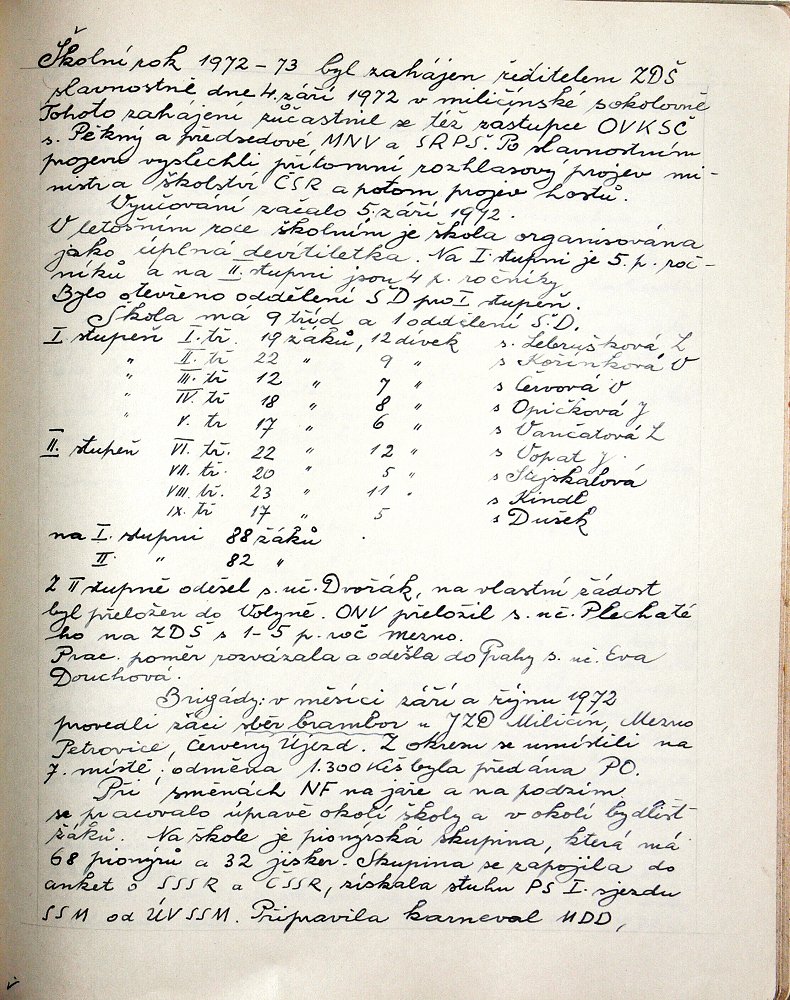 Školní rok 1972-73 byl zahájen ředitelem ZDŠ
slavnostně dne 4. září 1972 v miličínské sokolovně
Tohoto zahájení zúčastnil se též zástupce OVKSČ
s. Pěkný a předsedové MNV a SRPŠ. Po slavnostním
projevu vyslechli přítomní rozhlasový projev mi-
nistra školství ČSR a potom projev hostů.
Vyučování začalo 5. září 1972.
V letošním roce školním je škola organisována
jako úplná devítiletka. Na I. stupni je 5. p. roč-
níků a na II. stupni jsou 4 p. ročníky
Bylo otevřeno oddělení ŠD pro I. stupeň.
Škola má 9 tříd a 1 oddělení ŠD.
I. stupeň I. tř. 19 žáků, 12 dívek s. Lebrušková L
" II. tř 22 " 9 " s Kořínková V
" III. tř 12 " 7 " s Červová V
" IV. tř 18 " 8 " s Opičková J
" V. tr 17 " 6 " s Vančatová L
II. stupeň VI. tř. 22 " 12 " s Vopat J.
VII. tř. 20 " 5 " s Stejskalová
VIII. tř. 23 " 11 " s Kindl
IX. tř 17 " 5 s Dušek
na I. stupni 88 žáků
II. " 82 "
Z II stupně odešel s. uč. Dvořák, na vlastní žádost
byl přeložen do Volyně. ONV přeložil s. uč. Plechaté
ho na ZDŠ s 1-5 p. roč Mezno.
Prac. poměr rozvázala a odešla do Prahy s. uč. Eva
Douchová.
Brigády: v měsíci září a říjnu 1972
provedli žáci sběr brambor u JZD Miličín, Mezno
Petrovice, Červený Újezd. Z okresu se umístili na
7. místě, odměna 1.300 Kčs byla předána PO.
Při směnách NF na jaře a na podzim
se pracovalo úpravě okolí školy a v okolí bydlišť
žáků. Na škole je pionýrská skupina, která má
68 pionýrů a 32 jisker. Skupina se zapojila do
anket o SSSR a ČSSR, získala stuhu PS I. sjezdu
SSM od ÚVSSM. Připravila karneval MDD,